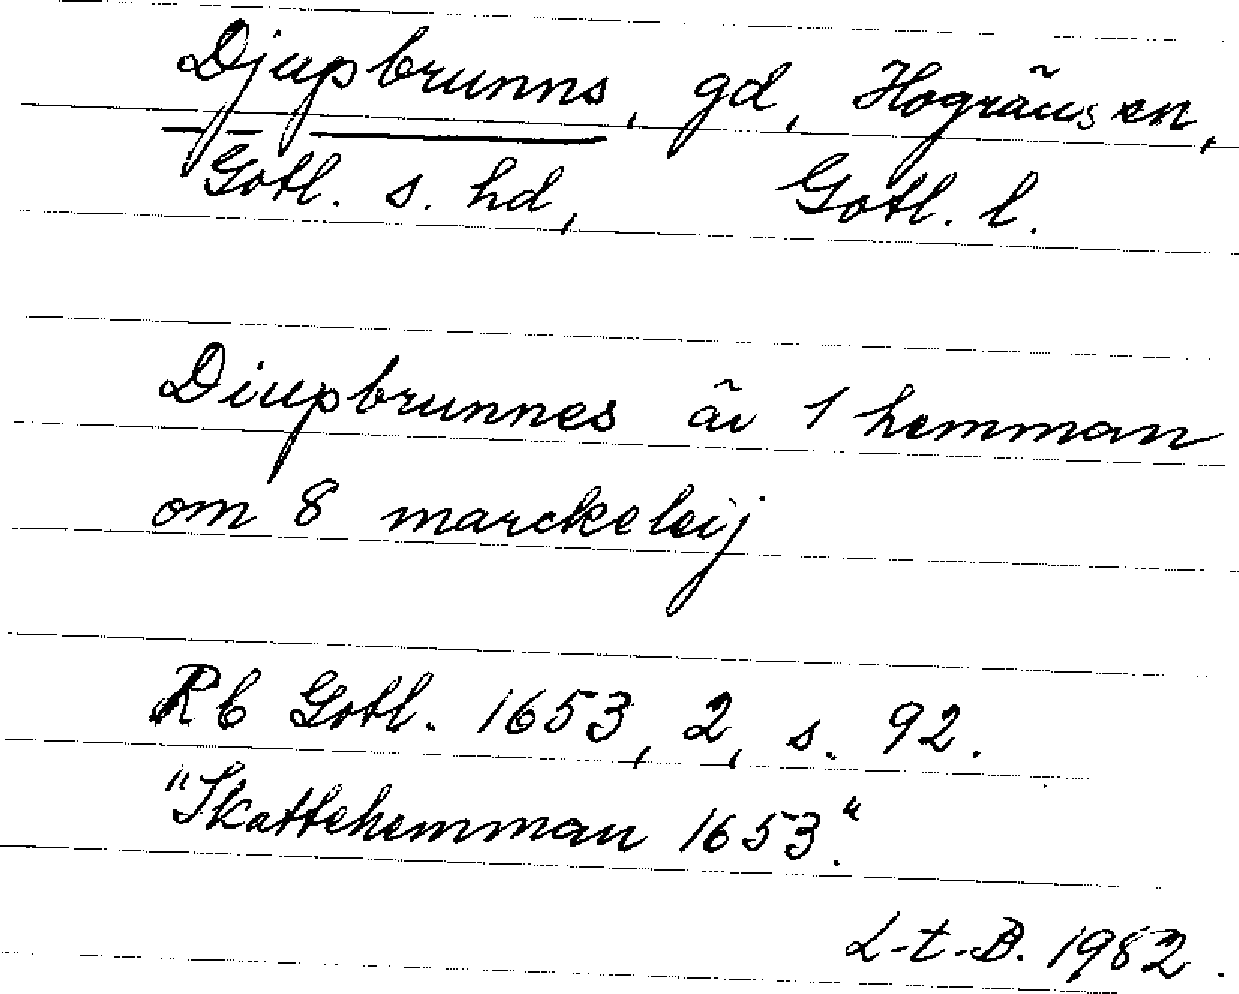 Djupbrunns, gd, Hogräns sn,
Gotl. s. hd, Gotl. l.
Diupbrunnes är 1 hemman
om 8 marckeleij
Rb Gotl. 1653, 2, s. 92.
"Skattehemman 1653".
L-t-B. 1982.